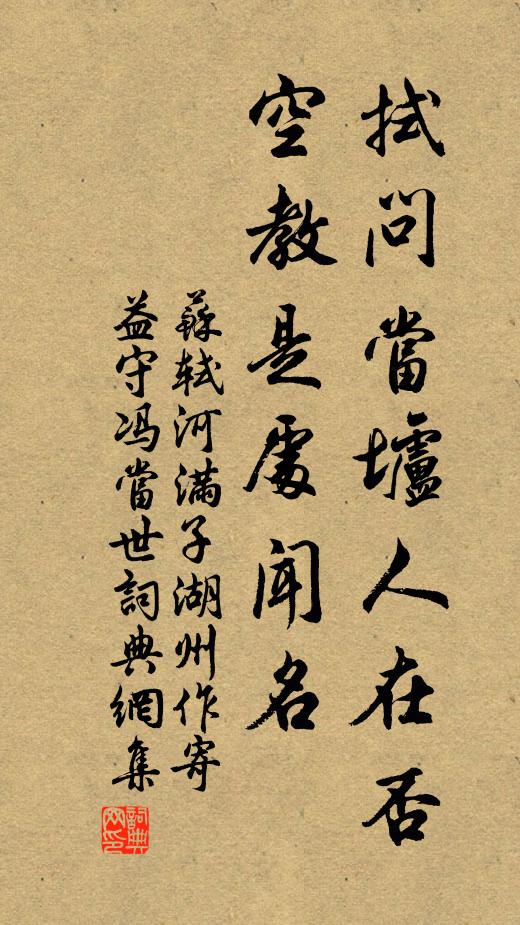 拭問當壚人在否
空教是處聞名
蘇軾河滿子湖州作寄
益守冯當世詞典網集
詞典网印